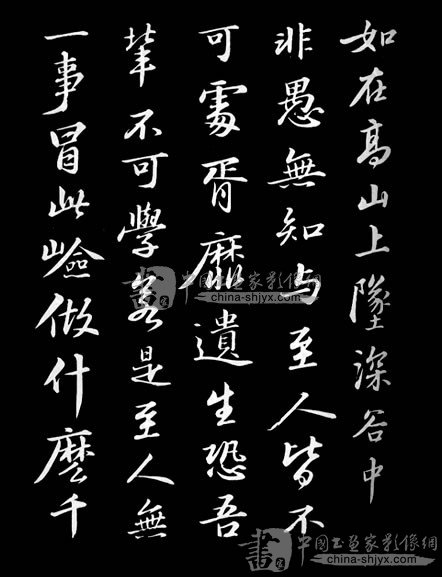 如在高山上墜深谷中
非愚無知与至人皆不
可處胥靡遺生恐吾
輩不可學若是至人無
一事冒此嶮做什麽千
書 中国书画家影像網
china-shjyx.com
書 中国书画家影像網
www.china-shjyx.com